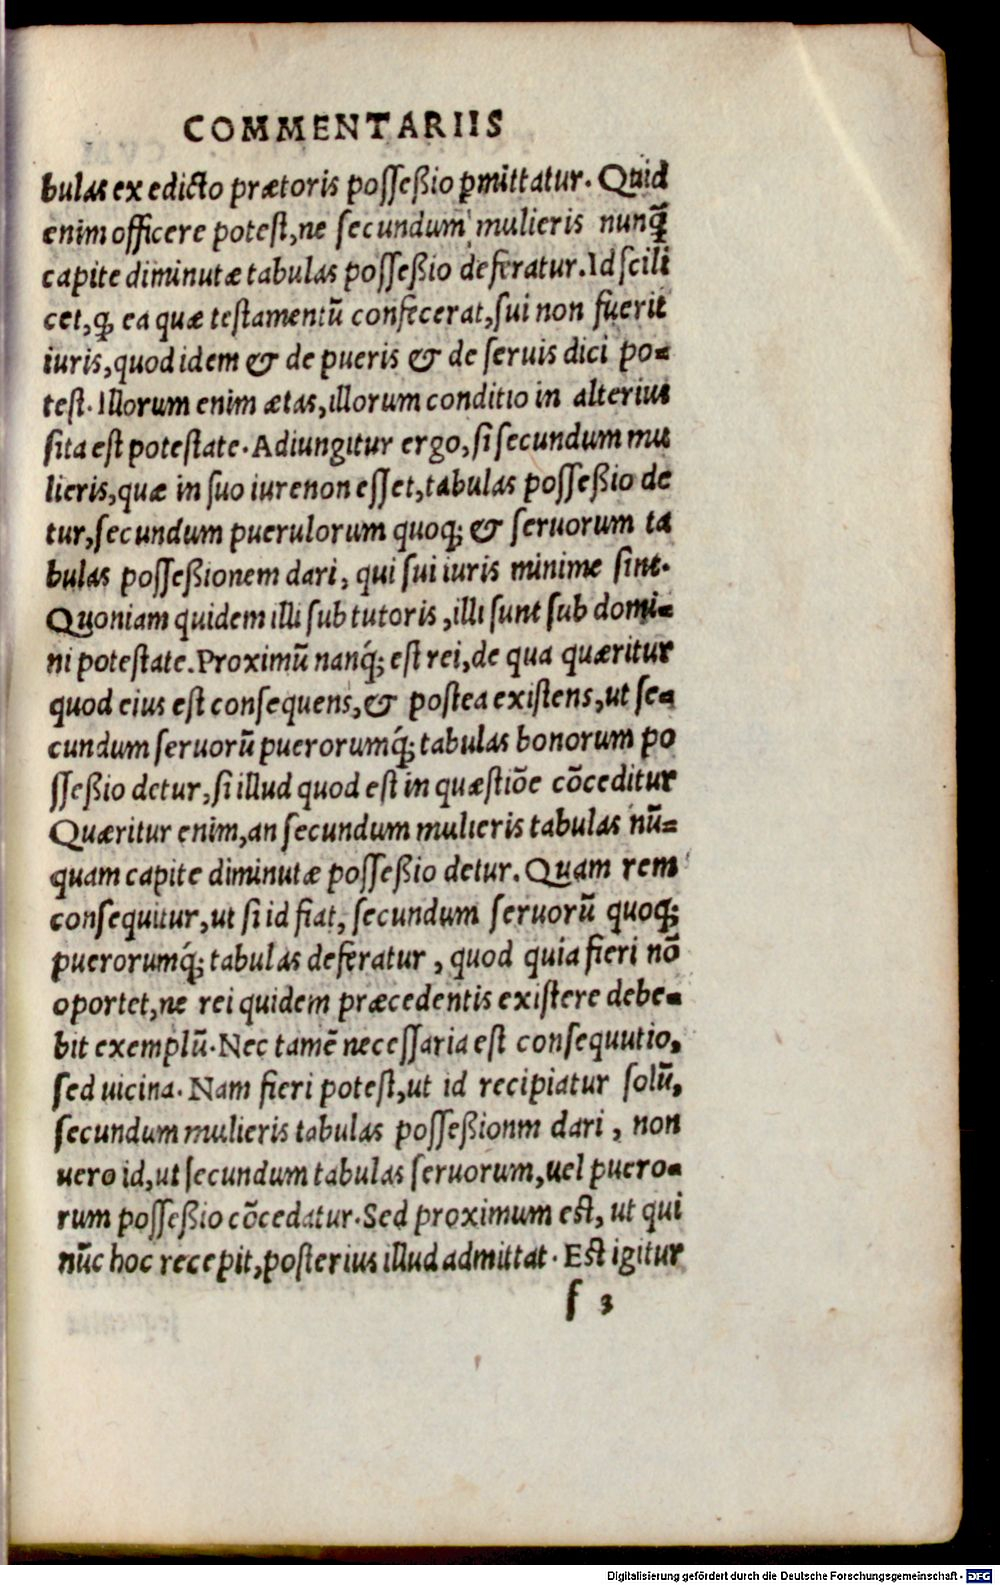 COMMENTARIIS
bulas ex edicto prætoris posseßio ꝑmittatur. Quid
enim officere potest, ne secundum mulieris nunꝗ̃
capite diminutæ tabulas posseßio deferatur. Id scili
cet, ꝙ ea quæ testamentũ confecerat, sui non fuerit
iuris, quod idem & de pueris & de seruis dici po=
test. Illorum enim ætas, illorum conditio in alterius
sita est potestate. Adiungitur ergo, si secundum mu
lieris, quæ in suo iure non esset, tabulas posseßio de
tur, secundum puerulorum quoq; & seruorum ta
bulas posseßionem dari, qui sui iuris minime sint.
Quoniam quidem illi sub tutoris, illi sunt sub domi=
ni potestate. Proximũ nanq́; est rei, de qua quæritur
quod eius est consequens, & postea existens, ut se=
cundum seruorũ puerorumq́; tabulas bonorum po
sseßio detur, si illud quod est in quæstiõe cõceditur
Quæritur enim, an secundum mulieris tabulas nũ=
quam capite diminutæ posseßio detur. Quam rem
consequitur, ut si id fiat, secundum seruorũ quoq;
puerorumq́; tabulas deferatur, quod quia fieri nõ
oportet, ne rei quidem præcedentis existere debe=
bit exemplũ. Nec tamẽ necessaria est consequutio,
sed uicina. Nam fieri potest, ut id recipiatur solũ,
secundum mulieris tabulas posseßionm dari, non
uero id, ut secundum tabulas seruorum, uel puero=
rum posseßio cõcedatur. Sed proximum est, ut qui
nũc hoc recepit, posterius illud admittat. Est igitur
f 3
Digitalisierung gefördert durch die Deutsche Forschungsgemeinschaft - DFG